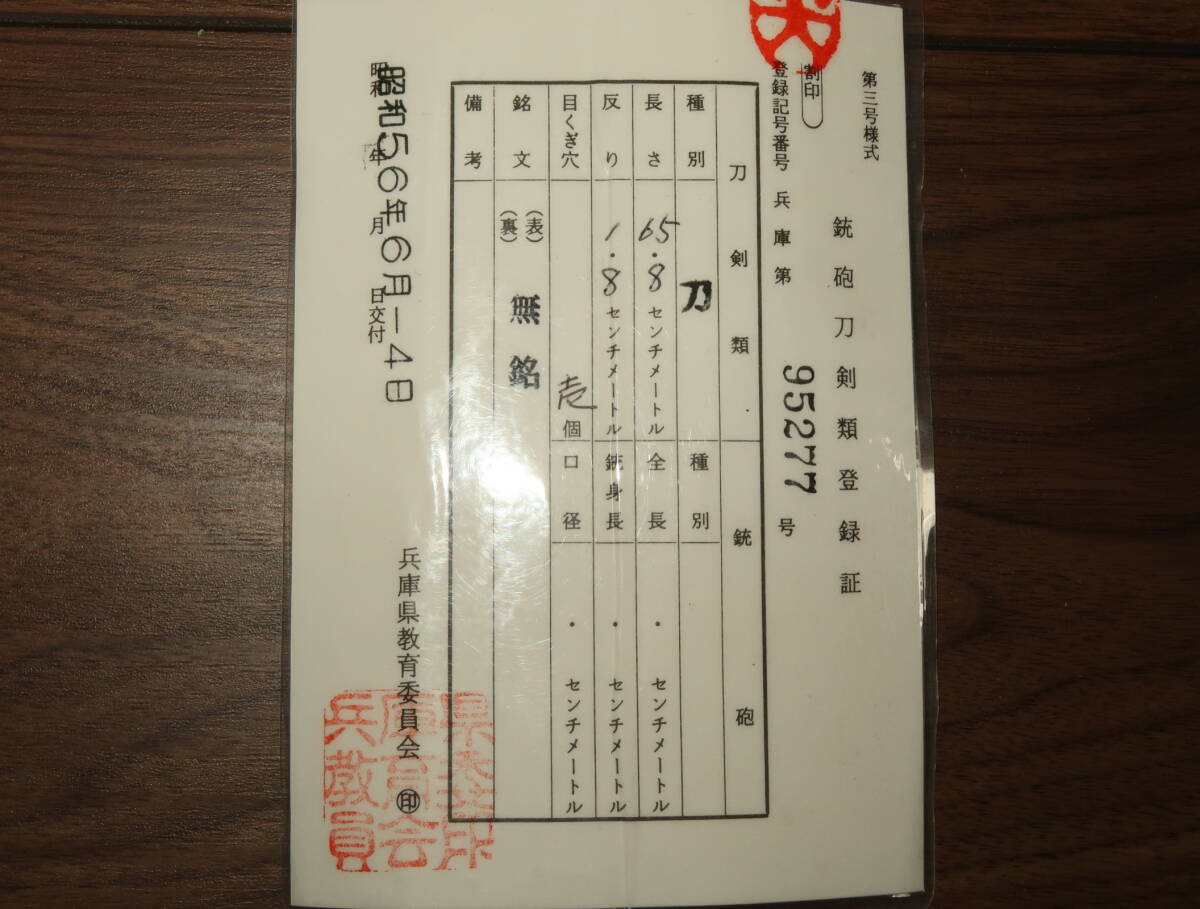 第三号様式
銃砲刀剣類登録証
割印
登録記号番号 兵庫第 95277 号
刀剣類
銃砲
種別 刀
種別
長さ 65.8 センチメートル
全長 ・ センチメートル
反り 1.8 センチメートル
銃身長 ・ センチメートル
目くぎ穴 壱 個
口径 ・ センチメートル
銘文 (表) (裏) 無銘
備考
昭和 年 月 日交付
昭和56年6月-4日
兵庫県教育委員会 ㊞
兵庫県
教育委
員会印